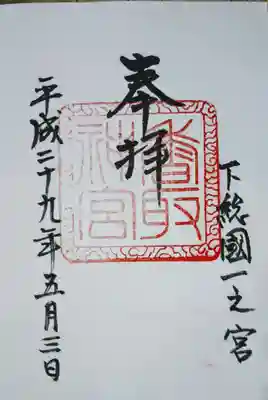 下総國一之宮
奉拝
香取神宮
平成二十九年五月三日